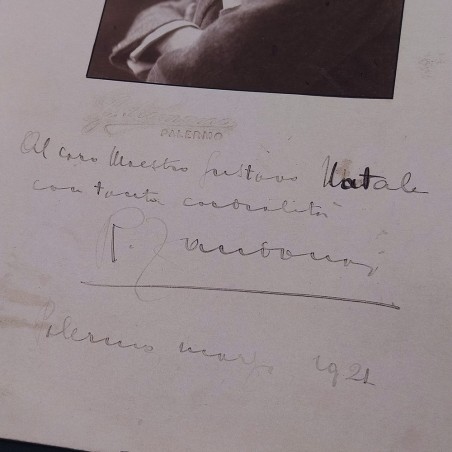 PALERMO
Al caro Maestro Gustavo Natale
con tanta cordialità
R. Zandonai
Palermo marzo 1921